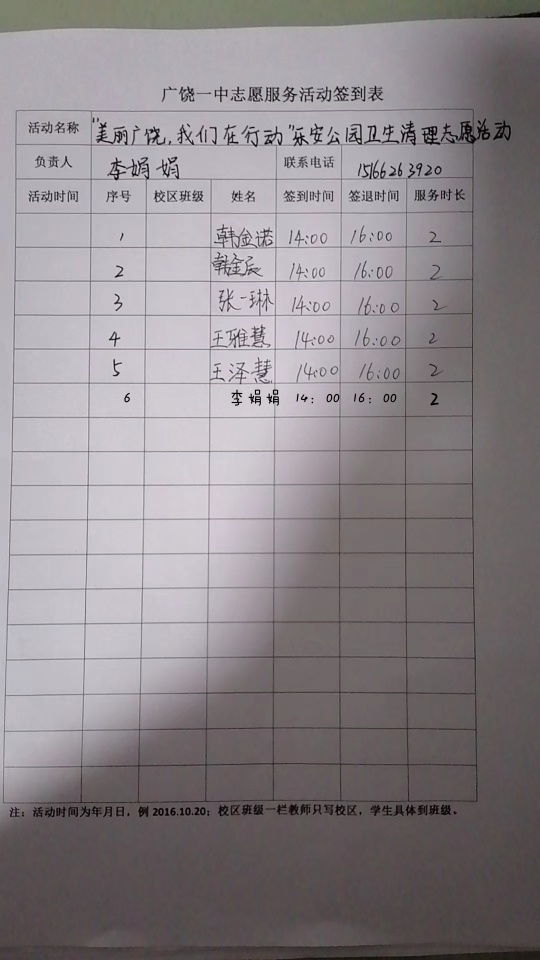 广饶一中志愿服务活动签到表
活动名称 "美丽广饶,我们在行动"乐安公园卫生清理志愿活动
负责人 李娟娟 联系电话 15166263920
活动时间 序号 校区班级 姓名 签到时间 签退时间 服务时长
1 韩金诺 14:00 16:00 2
2 韩金辰 14:00 16:00 2
3 张一琳 14:00 16:00 2
4 王雅慧 14:00 16:00 2
5 王泽慧 14:00 16:00 2
6 李娟娟 14: 00 16: 00 2
注：活动时间为年月日，例 2016.10.20；校区班级一栏教师只写校区，学生具体到班级。